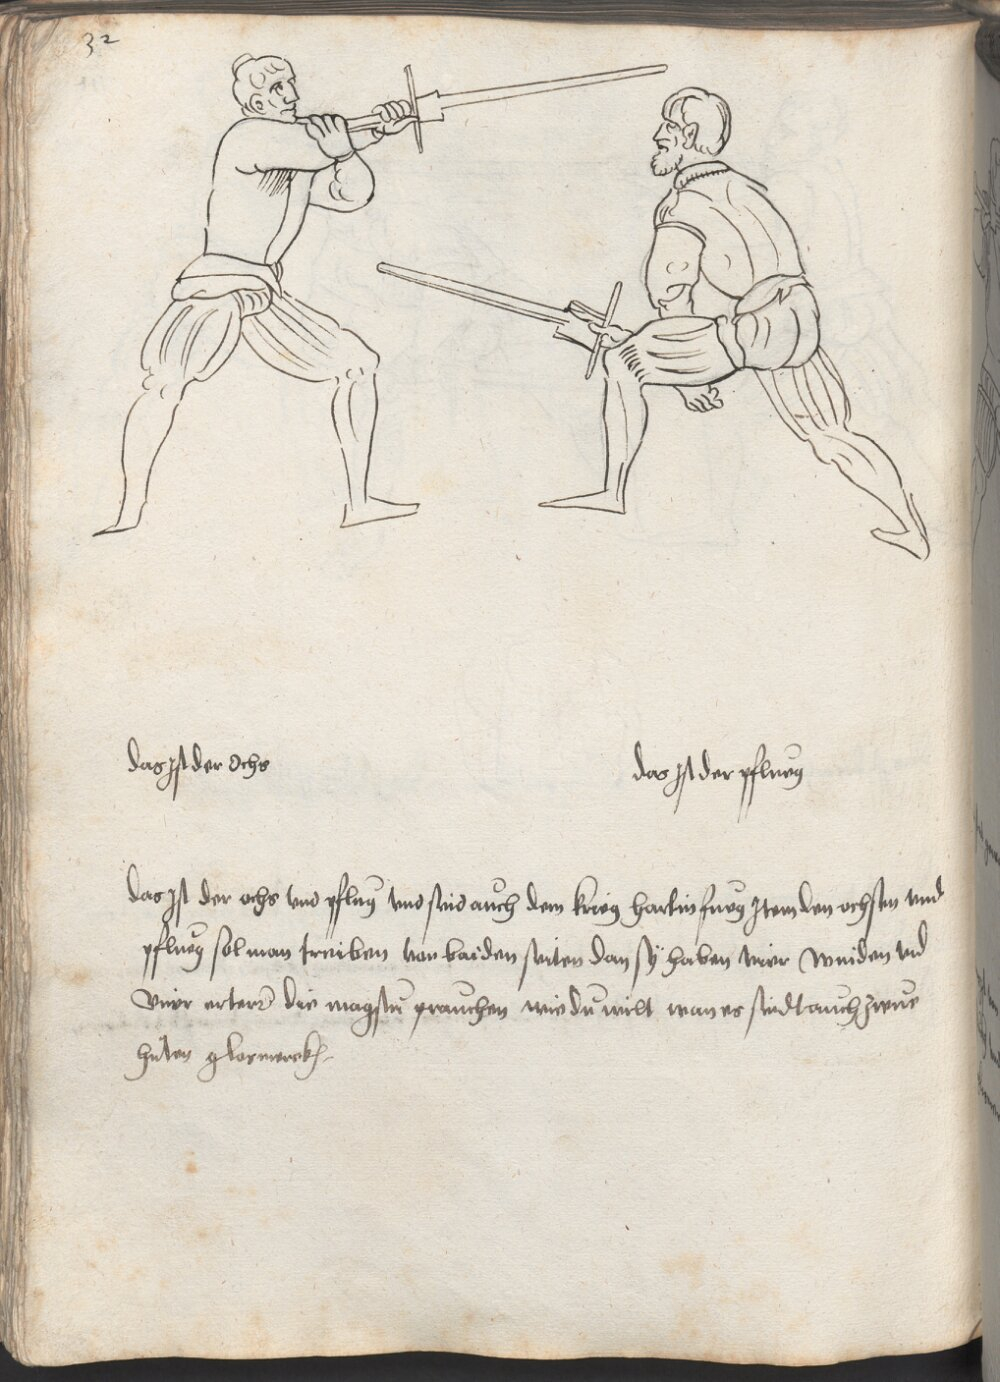 32
das Ist der Ochs
das Ist der pflueg
das Ist der ochs vnd pflug vnd sind auch dem krieg Item den ochsen vnd
pflueg sol man treiben von baiden seiten dan sÿ haben vier winden vnd
vier die magstu prauchen wie du wilt wan es sindt auch zwue
huten